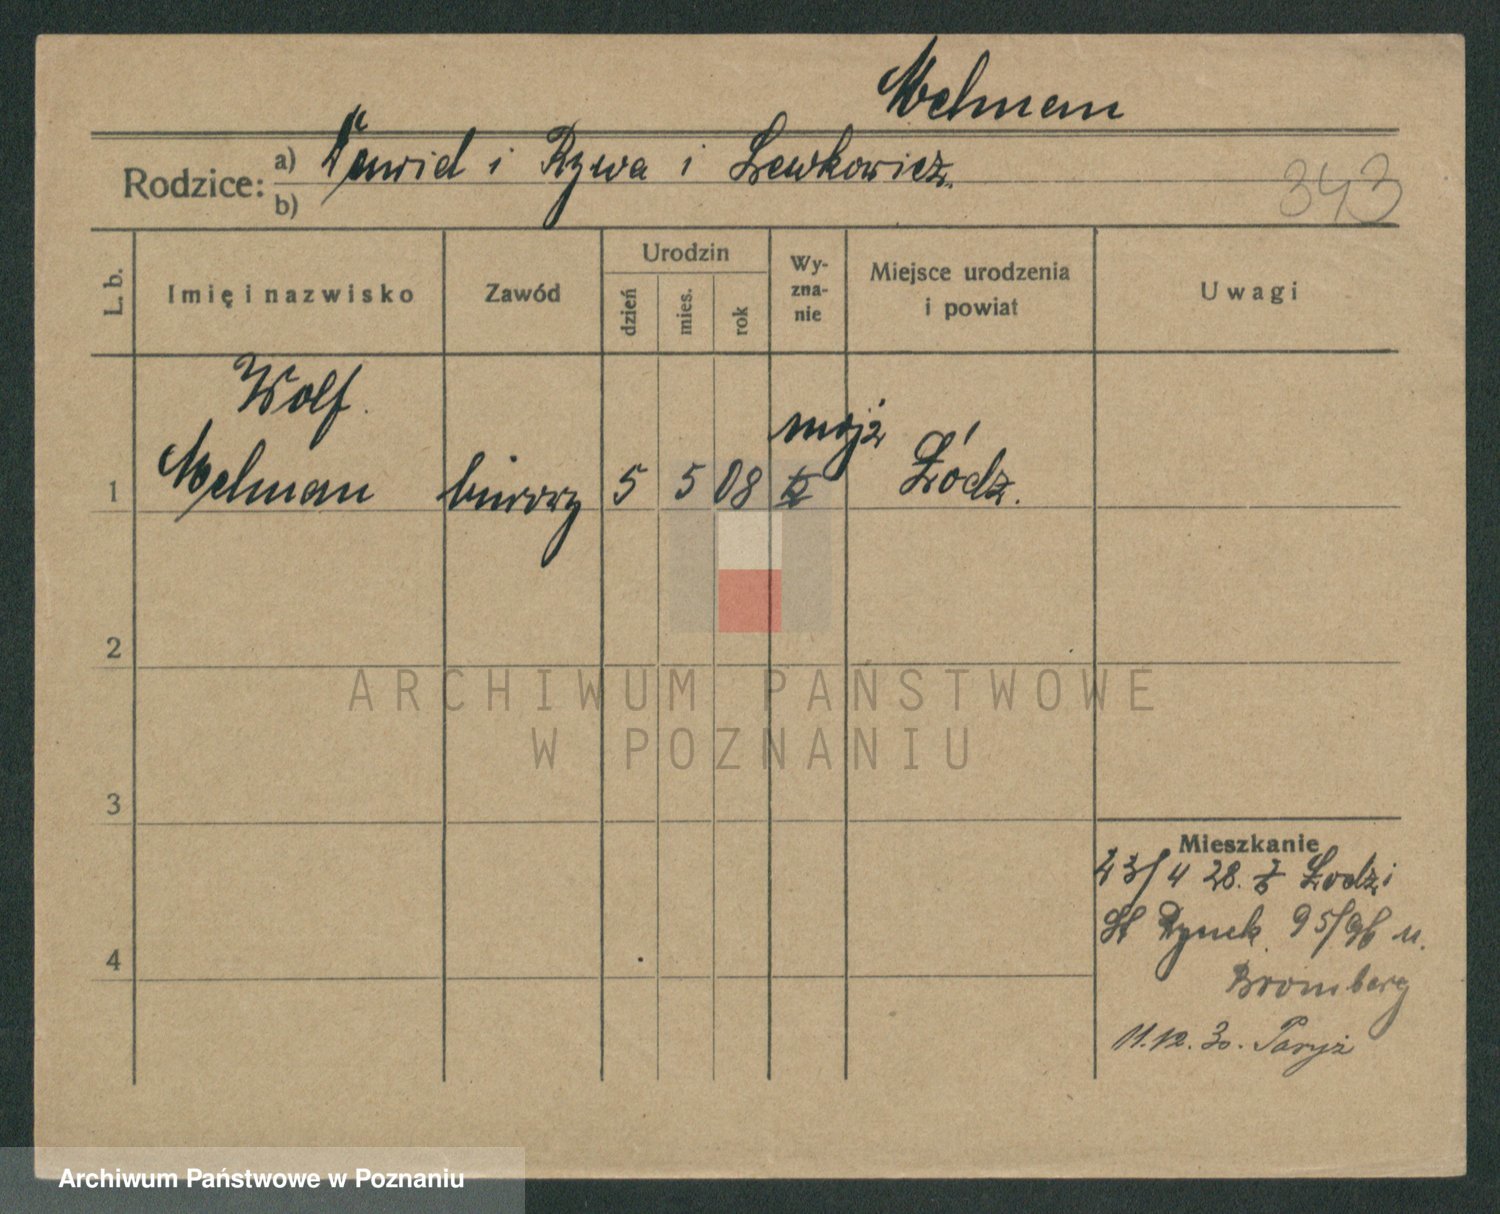 Melman
Rodzice: a) Dawid i Rywa i Lewkowicz.
b)
343
L. b.
Imię i nazwisko
Zawód
Urodzin
dzień
mies.
rok
Wy-
zna-
nie
Miejsce urodzenia
i powiat
Uwagi
Wolf.
1 Melman 5 5 08 mojż Łódź.
2
3
4
Mieszkanie
23/4 28. z Łodzi
St Rynek 95/96 u.
Bromberg
11.12.30. Paryż
ARCHIWUM PAŃSTWOWE
W POZNANIU
Archiwum Państwowe w Poznaniu